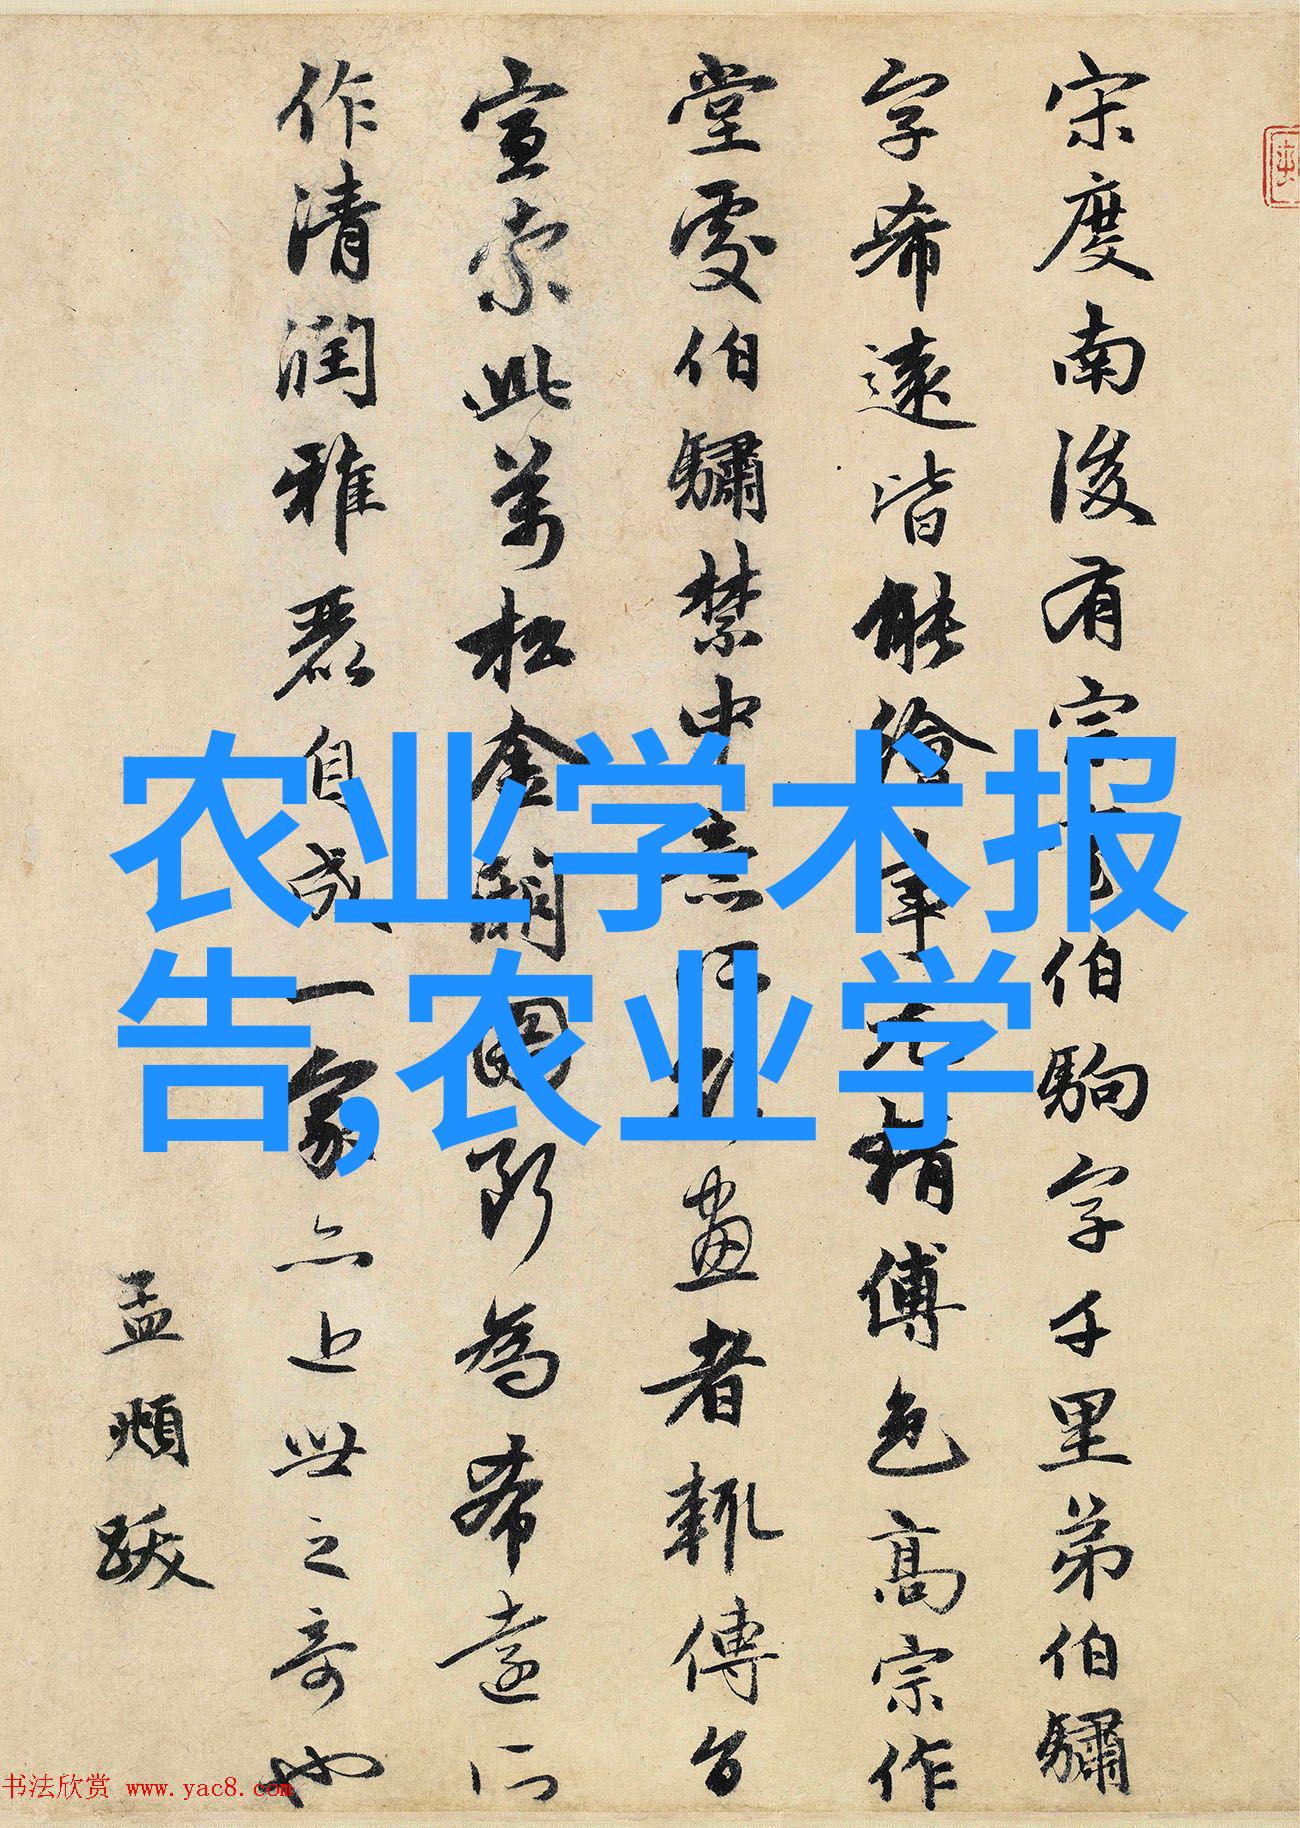 宋度南後有宗
伯駒字千里弟伯驌
字希遠皆能繪事
精傅色高宗作
堂處伯驌禁中意
畫者輒傳旨
宣索此萬松金闕圖所為希遠所
作清潤雅麗自成一家亦近世之奇也
孟頫跋
农业学术报
告,农业学
书法欣赏 www.yac8.com